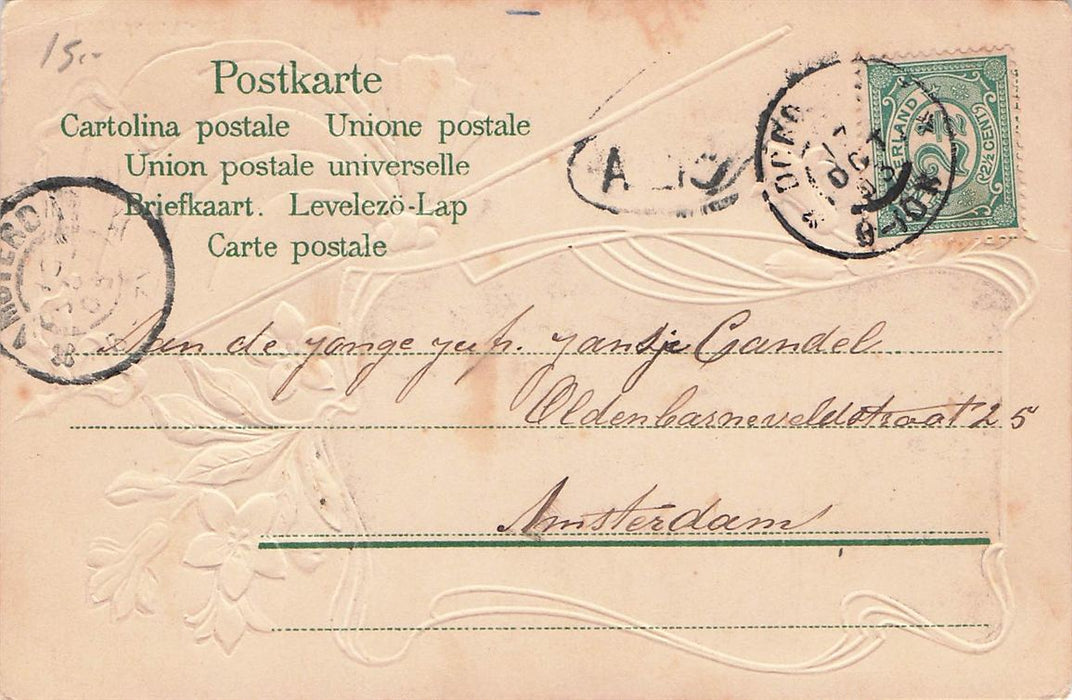 15.-
Postkarte
Cartolina postale Unione postale
Union postale universelle
Briefkaart. Levelezö-Lap
Carte postale
OCT
9-10
NEDERLAND
2½
(2½ CENT)
AMSTERDAM
Aan de jonge jufr. Jansje Candel
Oldenbarneveldstraat 25
Amsterdam